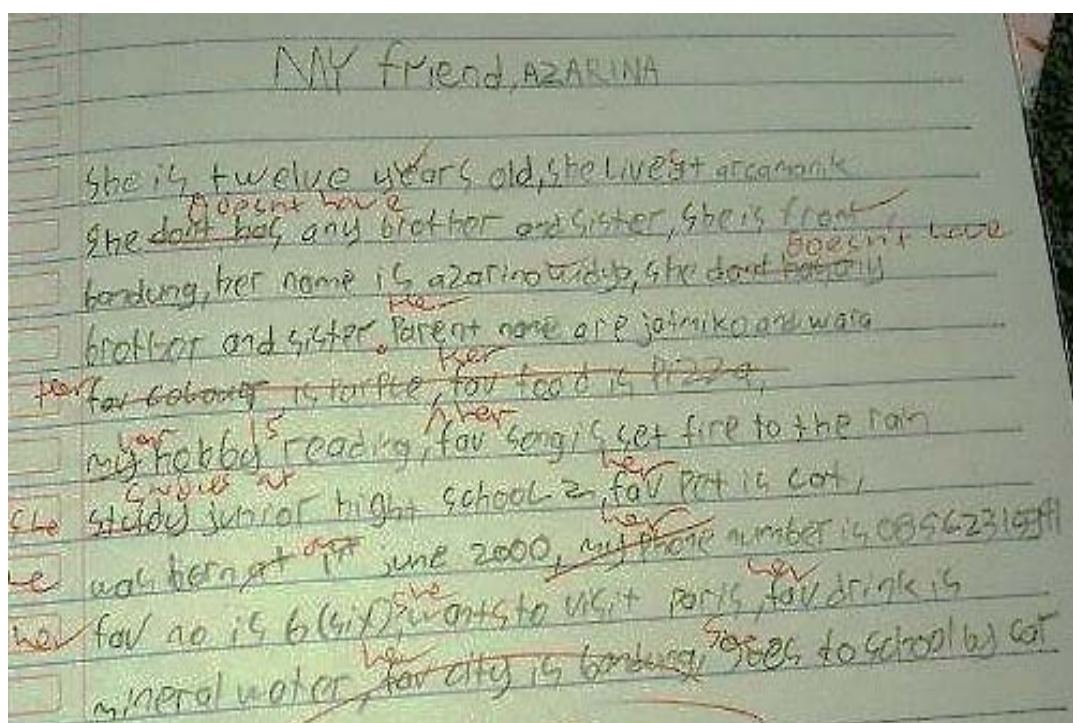 MY friend, AZARINA
she is twelve years old, she lives at arcamanik
Doesnt have
she dont has any brother and sister, she is from
Doesnt have
bandung, her name is azarina widya, she dont has any
her
brother and sister. Parent name are jatmiko and
her
her fav colour is purple, fav food is Pizza,
her is her
my hobby reading, fav song is set fire to the rain
studies at her
she study junior hight school 2, fav Pet is cat,
her
was born at june 2000, my phone number is
she her
her fav no is 6 (six), wants to visit paris, fav drink is
her she
mineral water, fav city is bandung, goes to school by car